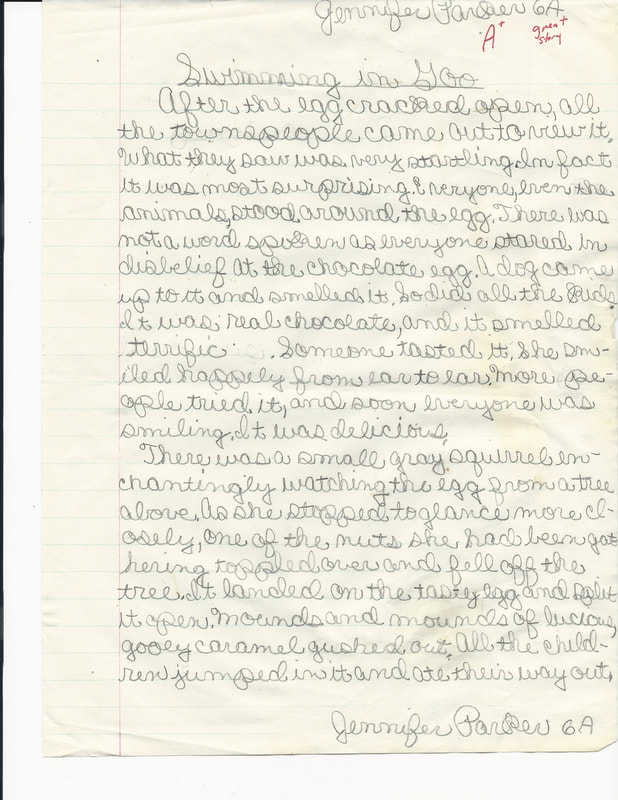 Jennifer Parker 6A
A+ great
story
Swimming in Goo
After the egg cracked open, all
the townspeople came out to view it.
What they saw was very startling. In fact
it was most surprising. Everyone, even the
animals, stood around the egg. There was
not a word spoken as everyone stared in
disbelief at the chocolate egg. A dog came
up to it and smelled it. So did all the kids.
It was real chocolate, and it smelled
terrific. Someone tasted it. She smi-
iled happily from ear to ear. More pe-
ople tried it, and soon everyone was
smiling. It was delicious.
There was a small, gray squirrel en-
chantingly watching the egg from a tree
above. As she stopped to glance more cl-
osely, one of the nuts she had been gat
hering toppled over and fell off the
tree. It landed on the tasty egg and split
it open. Mounds and mounds of lucious,
gooey caramel gushed out. All the child-
ren jumped in it and ate their way out.
Jennifer Parker 6A